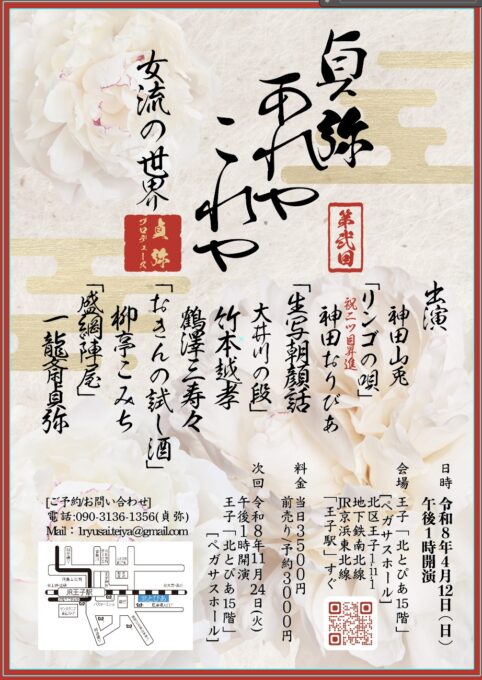 貞弥
あれや
これや
第弐回
女流の世界
貞弥
プロデュース
出演
神田山兎
「リンゴの唄」
祝二ツ目昇進
神田おりびあ
「生写朝顔話
大井川の段」
竹本越孝
鶴澤三寿々
「おきんの試し酒」
柳亭こみち
「盛綱陣屋」
一龍斎貞弥
日時 令和8年4月12日(日)
午後1時開演
会場 王子「北とぴあ15階」
[ペガサスホール]
北区王子1-11-1
地下鉄南北線
JR京浜東北線
「王子駅」すぐ
料金 当日3500円
前売り/予約3000円
次回 令和8年11月24日(火)
午後1時開演
王子「北とぴあ15階」
[ペガサスホール]
[ご予約/お問い合わせ]
電話:090-3136-1356(貞弥)
Mail:1ryusai.teiya@gmail.com
JR王子駅